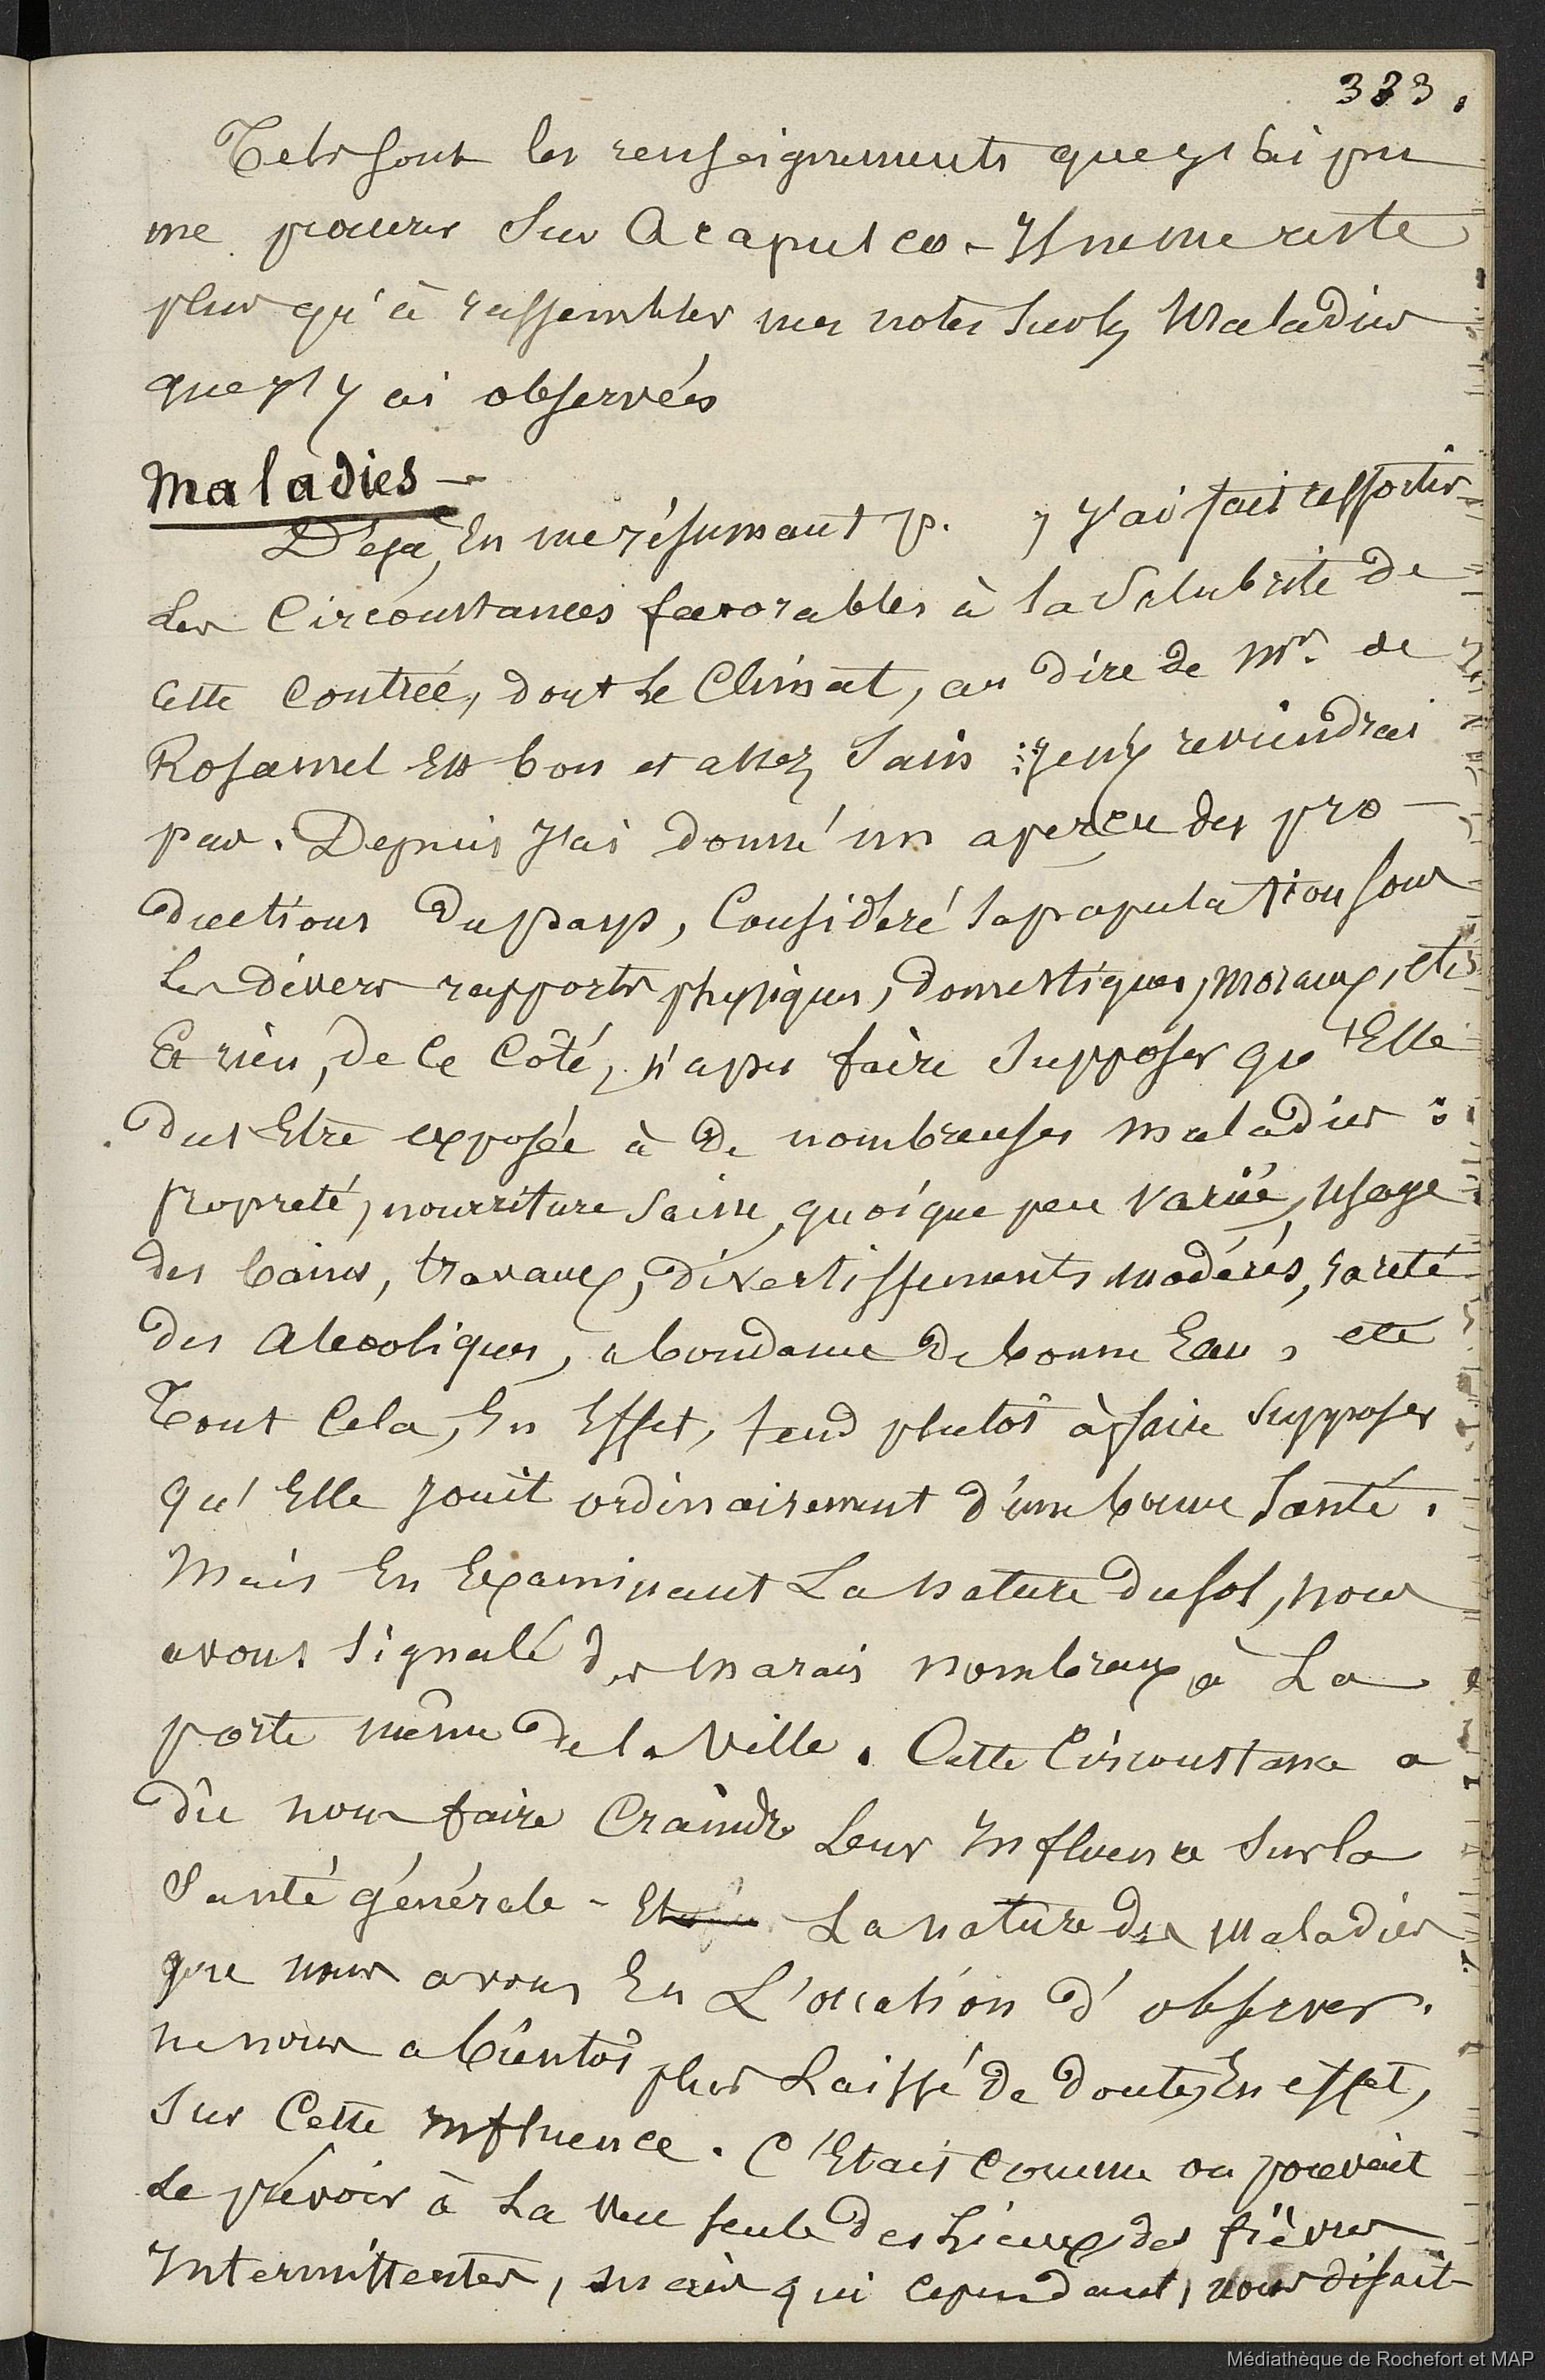 333.
Tels sont les renseignements que j'ai pu
me procurer sur Acapulco - Il ne me reste
plus qu'à rassembler mes notes sur les Maladies
que j'y ai observées
Maladies -
Déjà, En me résumant p. , j'ai fait ressortir
les Circonstances favorables à la Salubrité de
cette Contrée, dont le Climat, au dire de Mr. de
Rosamel Est bon et assez Sain : je n'y reviendrai
pas. Depuis j'ai donné un aperçu des pro-
ductions du pays, Considéré sa population sous
les divers rapports physiques, domestiques, moraux, etc
Et rien, de Ce Côté, n'a pu faire Supposer qu'Elle
dut Etre exposée à de nombreuses maladies :
propreté, nourriture saine, quoique peu variée, usage
des bains, travaux, divertissements modérés, rareté
des Alcooliques, abondance de bonne Eau, etc
Tout Cela, En Effet, tend plutôt à faire Supposer
qu'Elle jouit ordinairement d'une bonne Santé.
Mais En Examinant La nature du sol, nous
avons signalé des Marais nombreux à La
porte même de la Ville. Cette Circonstance a
dû nous faire Craindre Leur Influence sur la
Santé générale - La nature des Maladies
que nous avons Eu L'occasion d'observer.
ne nous a bientôt plus Laissé de doute, En effet,
sur Cette Influence. C'Etait Comme on pouvait
le prévoir à La Vue seule des Lieux, des fièvres
Intermittentes, mais qui cependant, nous disait-
Médiathèque de Rochefort et MAP